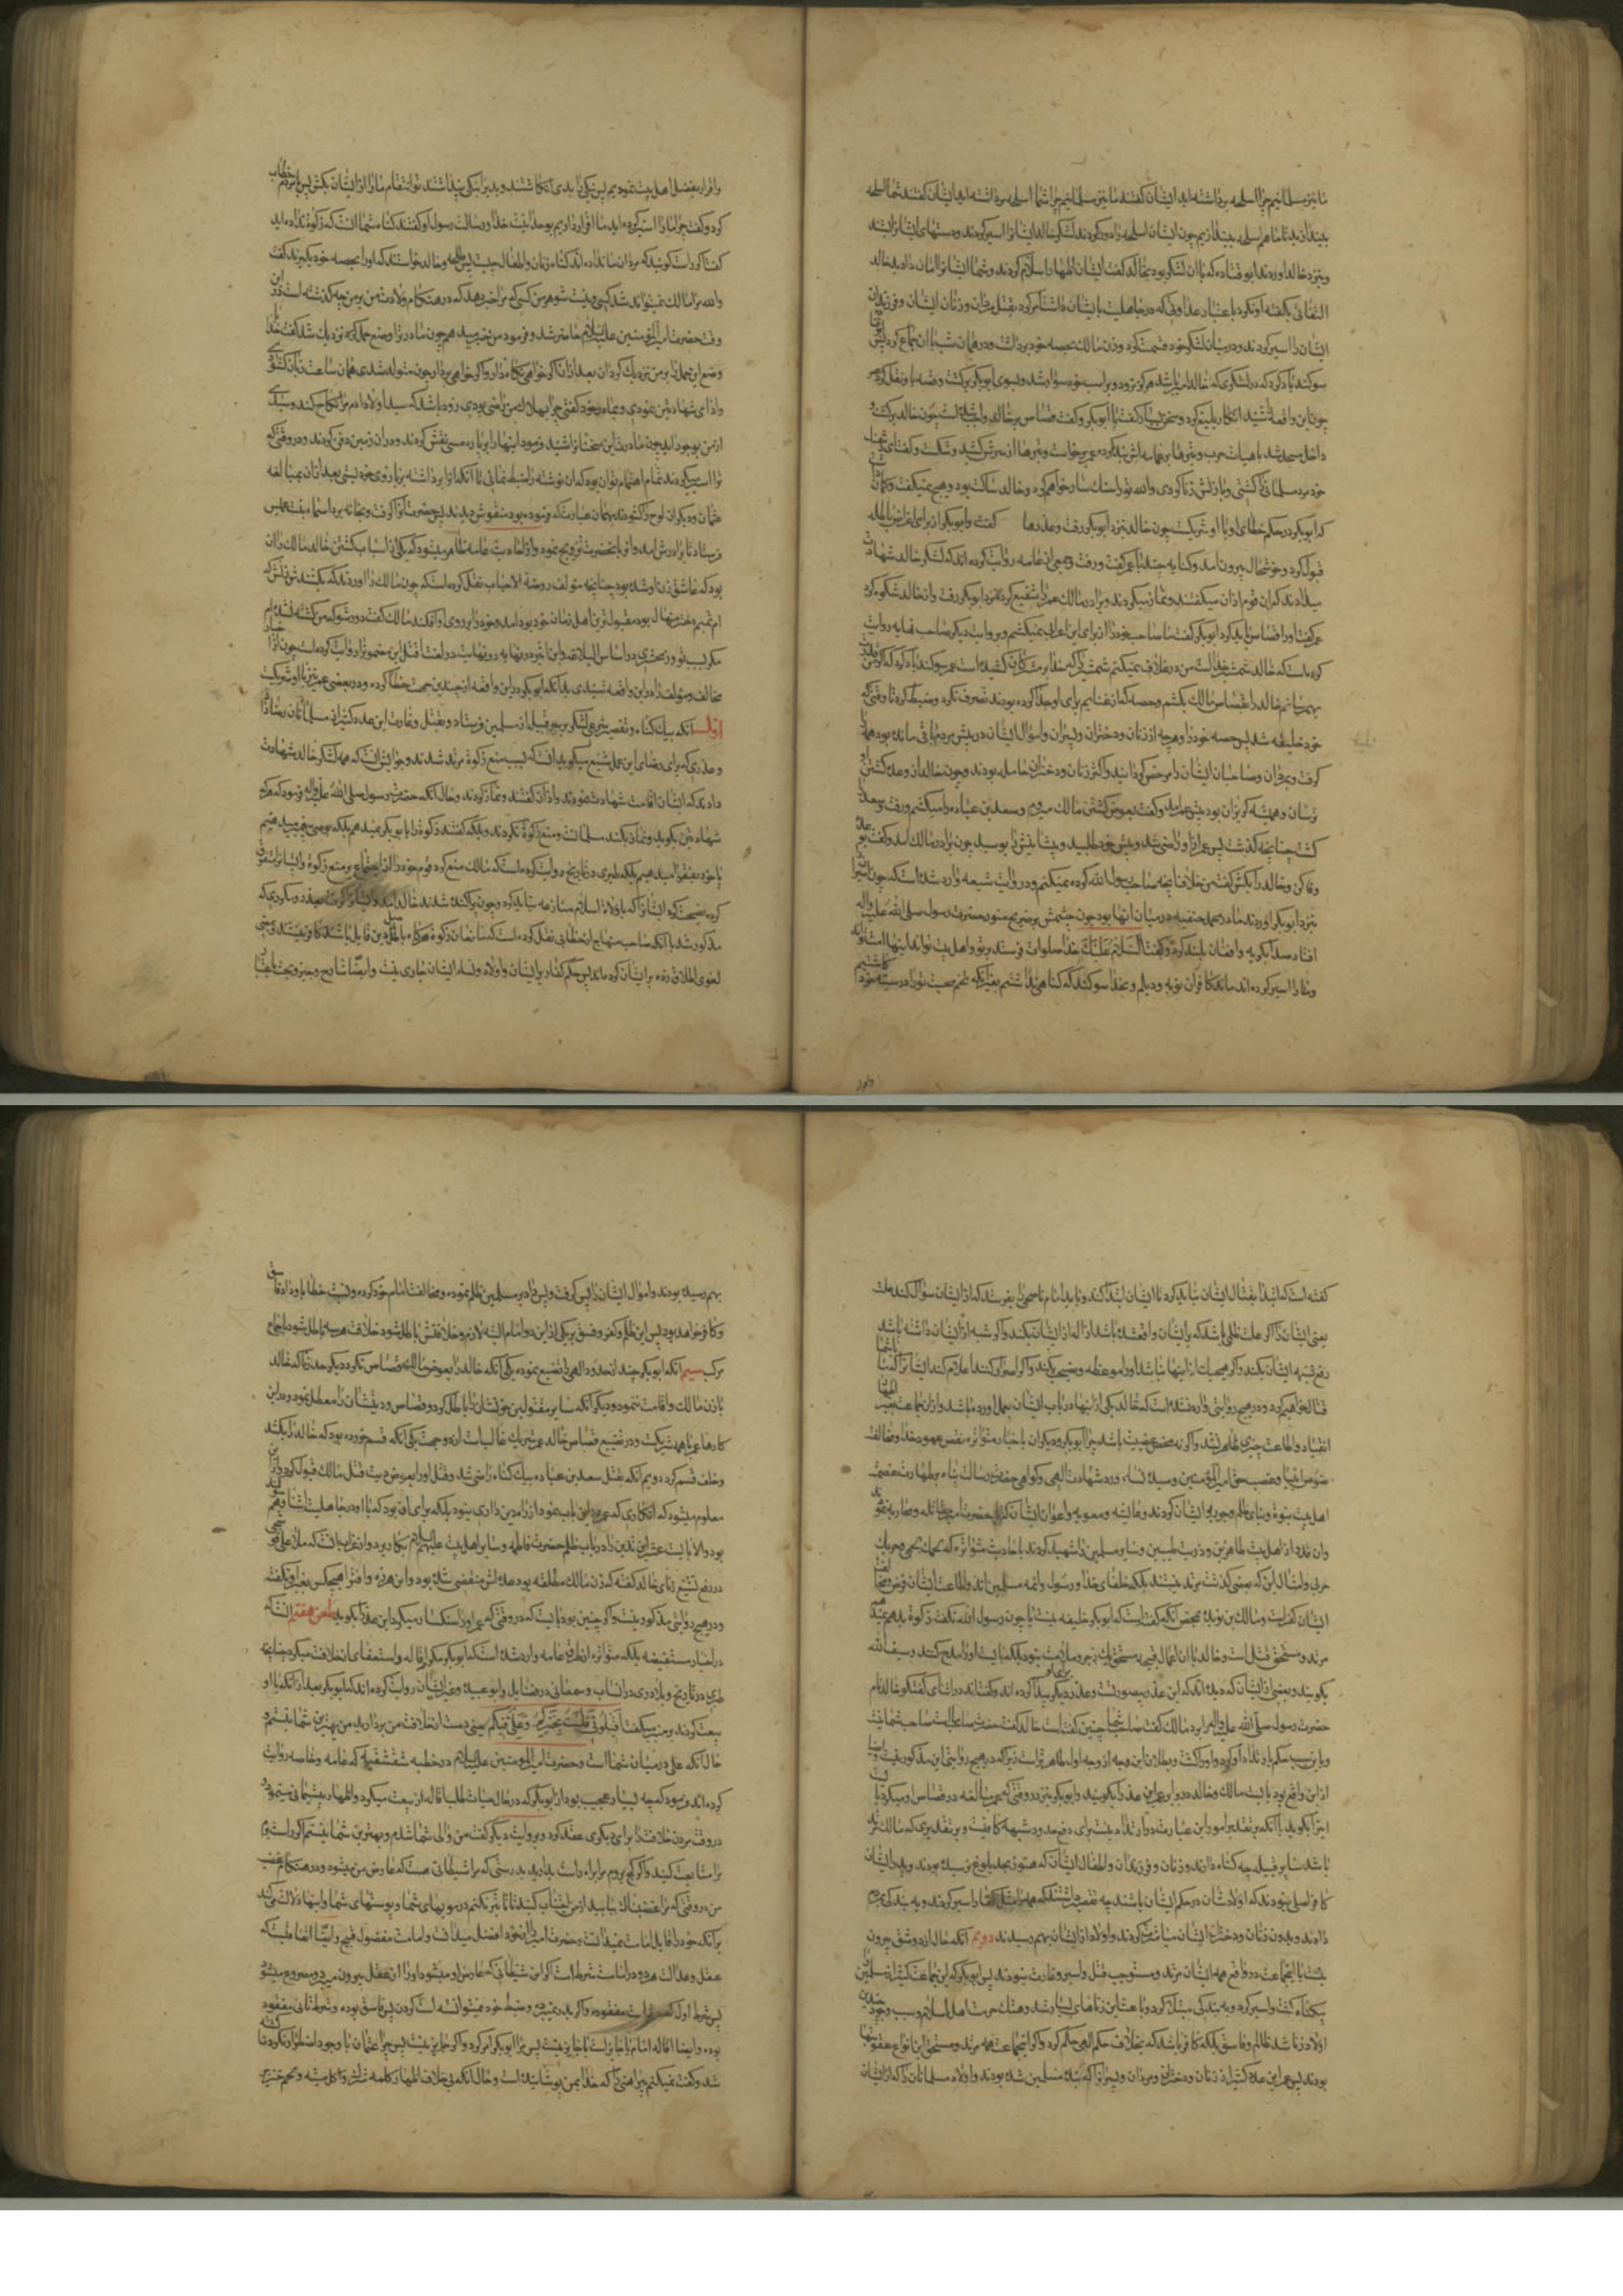 ما نیز مسلمانیم چرا اسلحه برداشته اید ایشان گفتند ما نیز مسلمانیم چرا شما اسلحه برداشته اید ایشان گفتند شما اسلحه
بیندازید تا ما هم اسلحه بیندازیم چون ایشان اسلحه را دور کردند لشکر خالد ایشانرا اسیر کردند و دستهای ایشانرا بستند
و بنزد خالد اوردند ابو قتاده که با ان لشکر بود بخالد گفت ایشان اظهار اسلام کردند و شما ایشانرا امان داده اید خالد
التفاتی بگفته او نکرد باعتبار عداوتی که در جاهلیت با ایشان داشت امر کرد بقتل مردان و زنان ایشان و فرزندان
ایشان را اسیر کردند و در میان لشکر خود قسمت کرد و زن مالک بحصه خود برداشت و در همان شب با ان جماع کرد
سوکند یاد کرد که در لشکری که خالد امیر باشد هرکز نرود و بر اسب خود سوار شد و بسوی ابو بکر برکشت و قصه باو نقل کرد عمر
چون این واقعه شنید انکار بلیغ کرد و سخن بسیار گفت با ابوبکر و گفت قصاص بر خالد واجب شده است چون خالد برکشت و
داخل مسجد شد با هیات حرب و تیرها بر عمامه اش بند کرده عمر برخواست و تیرها از سرش کشید و شکست و گفت ای دشمن
خود مرد مسلمانی را کشتی و با زنش زنا کردی والله تو را سنکسار خواهم کرد و خالد ساکت بود و هیچ نمیگفت و گمان
که ابو بکر در حکم خطای او با او شریکست چون خالد بنزد ابوبکر رفت و عذرها گفت و ابوبکر از برای اغراض باطله
قبول کرد و خوشحال بیرون امد و کنایه چند با عمر گفت و رفت و جمعی از عامه روایت کرده اند که لشکر خالد شهادت
میدادند که این قوم اذان میکفتند و نماز میکردند و برادر مالک عمر را شفیع کرد که نزد ابوبکر رفت و از خالد شکوه کرد
عمر گفت او را قصاص باید کرد ابوبکر گفت ما صاحب خود را از برای این اعرابی نمیکشیم و بروایت دیکر صاحب نهایه روایت
کرده است که خالد شمشیر خداست من در غلاف نمیکنم شمشیری را که خدا بر مشرکان کشیده است عمر سوکند یاد کرد که اگر من قدرت
بهم رسانم خالد را بقصاص مالک بکشم و حصه که از غنایم برای او جدا کرده بودند تصرف نکرد و ضبط کرد تا وقتی که
خود خلیفه شد پس حصه خود را و هر چه از زنان و دختران و پسران و اموال ایشان در پیش مردم باقی مانده بود همه را
کرفت و بمردان و صاحبان ایشان داد مرخص کردانید و اکثر زنان و دختران حامله بودند و چون خالد از وعده کشتن او
ترسان و همیشه کریزان بود پیش عمر آمد و گفت بعوض کشتن مالک میروم و سعد بن عباده را میکشم و رفت و سعد را
کشت چنانچه گذشت پس عمر از او راضی شد و پیش خود طلبید و پیشانیش را بوسید چون برادر مالک آمد و گفت بوعده
وفا کن و خالد را بکش گفت من خلاف انچه صاحب رسول الله کرده نمیکنم و در روایت شیعه وارد شده است که چون اسیران را
بنزد ابو بکر اوردند مادر محمد حنفیه در میان انها بود چون چشمش بر ضریح منور حضرت رسول صلی الله علیه و اله
افتاد صدا بکریه و افغان بلند کرد و گفت السلام علیک خدا صلوات فرستد بر تو و اهل بیت تو اند اینها امت تواند
و ما را اسیر کرده اند مانند کافران نوبه و دیلم و بخدا سوکند که کناهی نداشتیم بغیر آنکه تخم محبت تو را در سینه خود کاشتیم
و اقرار بفضل اهل بیت نمودیم پس نیکی را بدی انکاشتند و بدی را نیکی پنداشتند تو انتقام ما را از ایشان بکش پس با مردم خطاب
کرد و گفت چرا ما را اسیر کرده اید ما اقرار داریم بوحدانیت خدا و رسالت رسول او گفتند کناه شما انست که زکوة نداده اید
گفت اگر راست گویید که مردان ما نداده اند گناه زنان و اطفال چیست پس طلحه و خالد خواستند که او را بحصه خود بگیرند گفت
والله مرا مالک نمیتواند شد کسی و نیست شوهر من کسی که مرا خبر دهد که در هنکام ولادت من بر من چه گذشته است در این
وقت حضرت امیرالمومنین علیه السلام حاضر شد و فرمود من خبر میدهم چون مادر تو را وضع حمل نزدیک شد گفت خدایا
وضع این حمل را بر من نزدیک کردان بعد از ان اکر خواهی نکاه دار و اکر خواهی بردار چون متولد شدی همان ساعت زبان کشودی
و ادای شهادتین نمودی و بمادر خود گفتی چرا بهلاک من راضی بودی زود باشد که سید اولاد ادم مرا نکاح کند و سیدی
از من بوجود اید چون مادرت این سخنانرا شنید فرمود اینها را بر پاره مسی نقش کردند و در ان زمین دفن کردند و در وقتی که
تو را اسیر میکردند تمام اهتمام تو ان بود که ان نوشته را ضبط نمائی تا انکه انرا برداشته بر بازوی خود بستی بعد از ان بمبالغه
عثمان و دیکران لوح را کشودند بهمان عبارت که فرموده بود منقوش دیدند پس حضرت او را گرفت و بخانه برد اسماء بنت عمیس
فرستاد تا برادرش امد و او را بانحضرت تزویج نمود و از احادیث عامه ظاهر میشود که یکی از اسباب کشتن خالد مالک را ان
بود که عاشق زن او شده بود چنانچه مؤلف روضة الاحباب نقل کرده است که چون مالک را اوردند که بکشند زنش که
ام تمیم دختر منهال بود مقبول ترین اهل زمان خود بود امد و خود را بر روی او افکند مالک گفت دور شو که من کشته نشدم
مکر بسبب تو و زمخشری در اساس البلاغه و ابن اثیر در نهایه در لغت اقتل این مضمون را روایت کرده است چون اخبار
مخالف و مؤلف را در این واقعه شنیدی بدانکه ابو بکر در این واقعه از چندین جهت خطا کرده و در بعضی عمر نیز با او شریکست
اول آنکه بی گناه و تقصیر شرعی لشکر بر سر قبیله از مسلمین فرستاد و بقتل و غارت این عده کثیر از مسلمانان رضا داد
و عذری که برای رضای این عمل شنیع میکویند انست که بسبب منع زکوة مرتد شدند و جوابش انست که همه لشکر خالد شهادت
دادند که ایشان اقامت شهادت نمودند و اذان گفتند و نماز کردند و حال آنکه حضرت رسول صلی الله علیه و اله فرمود که هرکه
شهادتین بگوید و نماز بکند مسلمانست و منع زکوة نکردند و بلکه گفتند زکوة را بابو بکر نمیدهیم بلکه بوصی پیغمبر میدهیم
یا خود بفقرا میدهیم بلکه طبری در تاریخ روایت کرده است که مالک منع کرد قوم خود را از اجتماع بر منع زکوة و ایشانرا متفرق
کرد و نصیحت کرد ایشانرا که با ولاة اسلام منازعه نباید کرد و چون پراکنده شدند خالد امد و ایشانرا گرفت
مذکور شد با آنکه صاحب منهاج از خطابی نقل کرده است که مانعان زکوة هرگاه باصل دین قایل باشند کافر نیستند و بمعنی
لغوی اطلاق رده بر ایشان کرده اند پس حکم کفار بر ایشان و اولاد و نساء ایشان جاری نیست و ایضا شارح وجیز و بحث باغی
گفته است که ابتدا بقتال ایشان نباید کرد تا ایشان ابتدا کنند و باید امام ناصحی را بفرستد که از ایشان سؤال کند علت
بغی ایشان را اگر علت ظلمی باشد که بر ایشان واقع شده باشد ازاله از ایشان بکند و اگر شبه از ایشان داشته باشد
رفع شبهه ایشان بکند و اکر هیچیک از اینها نباشد او را موعظه و نصیحت بکند و اکر اصرار کنند اعلام کند ایشانرا که با شما
قتال خواهیم کرد و در هیچ روایتی وارد نشده است که خالد یکی از اینها در باب ایشان بعمل اورده باشد و از ان جماعت بغیر اظهار
انقیاد و اطاعت چیزی ظاهر نشد و اگر نه محض عصبیت باشد چرا ابوبکر و دیگران با اخبار متواتره نقض عهود خدا و مخالفت
نصوص انبیا و غصب حق امیرالمؤمنین و سیده نساء و رد شهادت الهی و گواهی حضرت رسالت پناه بطهارت و عصمت
اهل بیت نبوة و بنای ظلم و جور بر ایشان کردند و عایشه و معویه و اعوان ایشان که با حضرت امیر مقاتله و محاربه نمودند
وان عدد از اهل بیت طاهرین و ذریت طیبین و سایر مسلمین را شهید کردند با احادیث متواتره که لحمک لحمی و حربک
حربی و امثال این که بعضی گذشت مرتد نیستند بلکه خلفای خدا و رسول و ائمه مسلمین اند و اطاعت ایشان فرض و مخالفت
ایشان کفر است و مالک بن نویره بمحض آنکه گفت که ابو بکر خلیفه نیست یا چون رسول الله نگفت زکوة بدهم نمیدهم
مرتد و مستحق قتل است و خالد با ان اعمال قبیح مستحق یک زجر و ملامت نبود بلکه بایست او را مدح کنند و سیف الله
بگویند و بعضی از ایشان که دیده اند که این عذر بیصورتست و عذر دیگر پیدا کرده اند و گفته اند در اثنای گفتکو خالد نام
حضرت رسول صلی الله علیه و اله را برد مالک گفت صاحب شما چنین گفته است خالد گفت حضرت رسالت صاحب شما نیست
و باین سبب حکم بارتداد او کرد و او را کشت و بطلان این وجه از وجه اول ظاهرتر است زیرا که در هیچ روایتی این مذکور نیست و ایضا
اگر این واقع بود بایست مالک و خالد در برابر عمر این عذر را بکویند و ابوبکر نیز در وقتی که عمر مبالغه در قصاص او میکرد این
اجرا بگوید با آنکه بر تقدیر امور این عبارت در ارتداد نیست برای دفع حد و شبهه کافیست و بر تقدیری که مالک مرتد
باشد سایر قبیله چه گناه دارند و زنان و فرزندان و اطفال ایشان که هنوز بحد بلوغ نرسیده بودند و پدر ایشان
کافر اصلی نبودند که اولاد ایشان در حکم ایشان باشند چه تقصیر داشتند که همه را مثل کفار اسیر کردند و به بندگی بمردم
دادند و بدون زنان و دختران ایشان مباشرت کردند و اولاد از ایشان بهم رسیدند دویم آنکه حال از دو شق بیرون
نیست یا این جماعت در واقع همه ایشان مرتد و مستوجب قتل و اسیر و غارت نبودند پس ابوبکر که این جماعت کثیر از مسلمین
بیگناه کشت و اسیر کرد و به بندکی مبتلا کرد و باعث این زناهای بسیار شد و هتک حرمت اهل اسلام و سبب وجود چندین
اولاد زنا شد ظالم و فاسق بلکه کافر باشد که بخلاف حکم الهی حکم کرد و اگر این جماعت همه مرتد و مستحق این انواع عقوبتها
بودند پس عمر این عده کثیر از زنان و دختران و مردان و پسرانرا که بنده مسلمین شده بودند و اولاد مسلمانان را که از ایشان
بهم رسیده بودند و اموال ایشان را پس گرفت و پس داد بر مسلمین ظلم نموده و مخالفت امام خود کرده و نسبت خطا باو داد فاسق
و کافر خواهد بود پس این ظلم و کفر و فسق بر یکی از این دو امام البته لازمست و خلافتش باطل شود خلافت هر سه باطل شود باجماع
مرکب سیم آنکه ابو بکر چند حد از حدود الهی را تضییع نموده یکی آنکه خالد را بعوض مالک قصاص نکرد و دیگر حد زنا که خالد
با زن مالک و اقامت ننمود و دیگر آنکه سایر مقتولین خونشان را باطل کرد و قصاص و دیت ایشان را معطل نمود و در این
کارها عمر با او شریکست و در تضییع قصاص خالد عمر شریک غالبست از دو جهت یکی آنکه قسم خورده بود که خالد را بکشد
و خلف قسم کرد دویم آنکه بقتل سعد بن عباده بیگناه راضی شد و قتل او را بعوض دیت قتل مالک قبول کرد و از این
معلوم میشود که انکاری که عمر در این باب نمود از راه دین داری نبود بلکه برای ان بود که با او در جاهلیت اشنا و هم سوگند
بود والا بایست عشر این تدین را در باب ظلم حضرت فاطمه و سایر اهل بیت علیهم السلام بکار برد و از غرایب انست که ملا علی قوشجی
در دفع تشنیع زنای خالد گفته که زن مالک مطلقه بود عده اش منقضی شده بود و این هرزه و افترا هیچکس بغیر او نکفته
و در هیچ روایتی مذکور نیست و اگر چنین بود بایست که در وقتی که عمر او را سنکسار میکرد این عذر را بگوید طعن هفتم انست که
در اخبار مستفیضه بلکه متواتره از طرق عامه وارد شده است که ابو بکر مکرر اقاله و استعفای از خلافت میکرد چنانچه
طبری در تاریخ و بلاذری در انساب و سمعانی در فضایل و ابو عبیده و غیر ایشان روایت کرده اند که ابوبکر بعد از آنکه با او
بیعت کردند بر منبر میکفت اقیلونی فلست بخیرکم و علی فیکم یعنی دست از خلافت من بردارید من بهترین شما نیستم و
حال آنکه علی در میان شما است و حضرت امیرالمومنین علیه السلام در خطبه شقشقیه که عامه و خاصه روایت
کرده اند فرمود که چه بسیار عجیب بود از ابو بکر که در حال حیات طلب اقاله از بیعت میکرد و اظهار پشیمانی مینمود
در وقت مردن خلافت را برای دیگری عقد کرد و بروایت دیگر گفت من والی شما شدم و بهترین شما نیستم اگر راست روم
مرا متابعت کنید و اگر کج بروم مرا براه راست بدارید بدرستی که مرا شیطانی هست که عارض من میشود و در هنکام غضب
من در وقتی که مرا غضبناک بیابید از من اجتناب کنید تا تاثیر نکنم در موهای شما و پوستهای شما و اینها دلالت میکند
بر آنکه خود را قابل امامت نمیدانست و حضرت امیر را از خود افضل میدانست و امامت مفضول قبیح و ایضا اتفاقیست که
عقل و عدالت هر دو در امامت شرط است اگر این شیطانی که عارض او میشود او را از عقل بیرون میبرد و مصروع میشود
پس شرط اول که عقل است مفقود و اگر بدر نمیبرد و ضبط خود نمیتوانسته است کردن پس فاسق بوده و شرط ثانی مفقود
بوده و ایضا اقاله امام یا جایز است یا جایز نیست پس چرا ابو بکر امر کرد و اگر جایز نیست پس چرا عثمان با وجود اضطرار نکرد تا کشته
شد و گفت نمیکنم پیراهنی را که خدا بمن پوشانیده است و حال آنکه بی خلاف اظهار کلمه شرک و اکل میته و لحم خنزیر